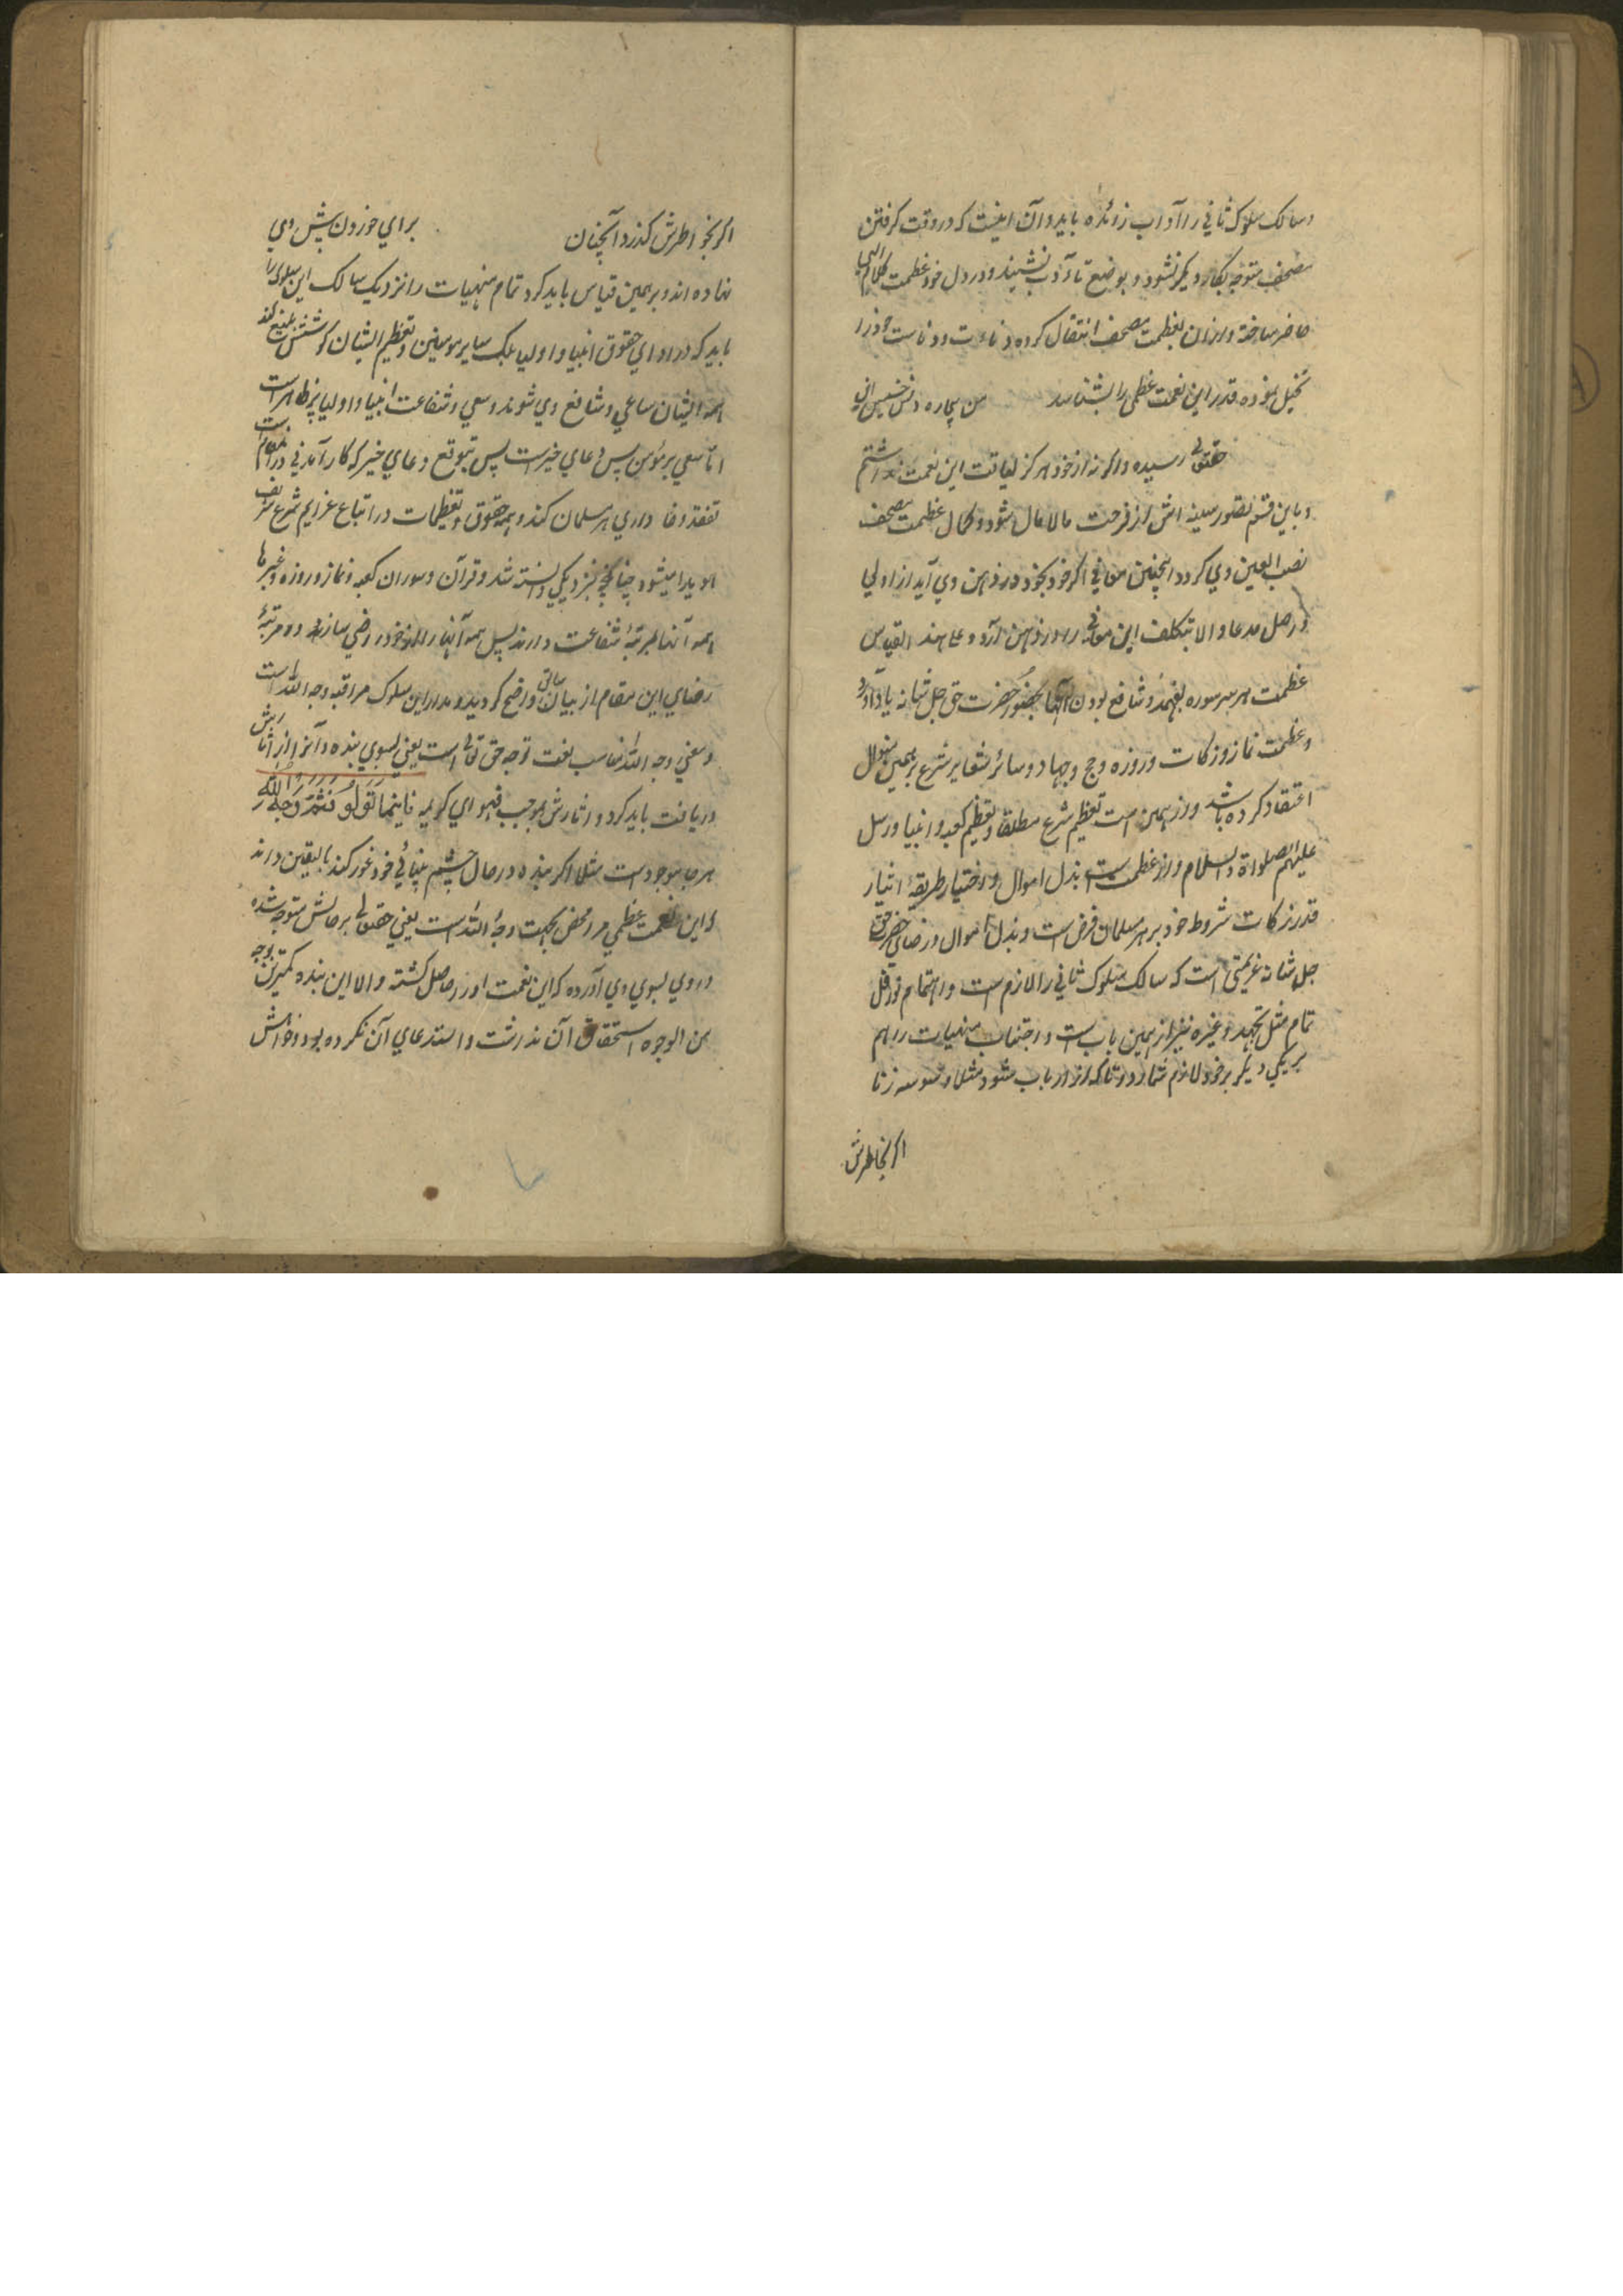 وسالک سلوک ثانی را آداب زائده باید و آن اینست که در وقت گرفتن
مصحف متوجه بکار دیگر نشود و بوضع تأدب نشیند و در دل خود عظمت کلام الهی
حاضر ساخته و ازان بعظمت مصحف انتقال کرده دناءت و دناست خود را
تخیل نموده قدر این نعمت عظمی را بشناسد من بیچاره
حق تعالی رسیده و اگر نه از خود هرگز لیاقت این نعمت نداشتم
و باین قسم تصور سینه اش از فرحت مالامال شود و کمال عظمت مصحف
نصب العین وی گردد اینچنین معانی اگر خود بخود در ذهن وی آید از اولی
و اصل مدعا و الا بتکلف این معانی را در ذهن آرد و علی هذا القیاس
عظمت هر هر سوره بفهمد و شافع بودن آنها بحضور حضرت حق جل شانه یاد آرد
و عظمت نماز و زکات و روزه و حج و جهاد و سائر شعایر شرع بر همین منوال
اعتقاد کرده باشد و از همین است تعظیم شرع مطلقا و تعظیم کعبه و انبیا و رسل
علیهم الصلواة والسلام و از عظمت است بذل اموال و اختیار طریقهٔ ایثار
قدر زکات شروط خود بر هر مسلمان فرض است و بذل اموال در رضای حضرت حق
جل شانه عزیمتی است که سالک سلوک ثانی را لازم است و اهتمام نوافل
تمام مثل تهجد و غیره نیز از همین باب است و اجتناب منهیات را هم
بر یکی دیگر بر خود لازم شمارد مثلا وسوسه زنا
اگر بخاطرش
اگر بخواطرش گذرد آنچنان برای خوردن پیش وی
نهاده اند و بر همین قیاس باید کرد تمام منهیات را نزدیک سالک این سلوک را
باید که در ادای حقوق انبیا و اولیا بلکه سایر مومنین و تعظیم ایشان کوشش بلیغ کند
همه ایشان ساعی و شافع وی شوند و سعی و شفاعت انبیا و اولیا پر ظاهر است
اما سعی هر مؤمن پس دعای خیر است پس بتوقع دعای خیر که کار آمدنی در آن مقام است
تفقد و فا داری هر مسلمان کند و همه حقوق و تعظیمات در اتباع عزایم شرع شریف
هویدا میشود چنانچه نزدیکی دانسته شد و قرآن و سوران کعبه و نماز و روزه و غیرها
همه آنها مرتبهٔ شفاعت دارند پس همه آنها را از خود راضی سازد و مرتبهٔ
رضای این مقام از بیان سابق واضح گردید و مدار این سلوک مراقبه وجه الله است
و معنی وجه الله مناسب لغت توجه حق تعالی است یعنی بسوی بنده و آنرا از آثارش
دریافت باید کرد و آثارش بموجب فحوای کریمه فَاَینَمَا تَوَلُّو فَثَمَّ وَجهُ اللهِ
هر جا موجود است مثلا اگر بنده در حال چشم بینائی خود غور کند بالیقین داند
که این نعمت عظمی مرا محض بجهت وجه الله است یعنی حق تعالی بر حالش متوجه شده
و روی بسوی وی آورده که این نعمت او را حاصل گشته و الا این بنده کمترین بوجه
من الوجوه استحقاق آن نداشت و استدعای آن نکرده بود و خواهش